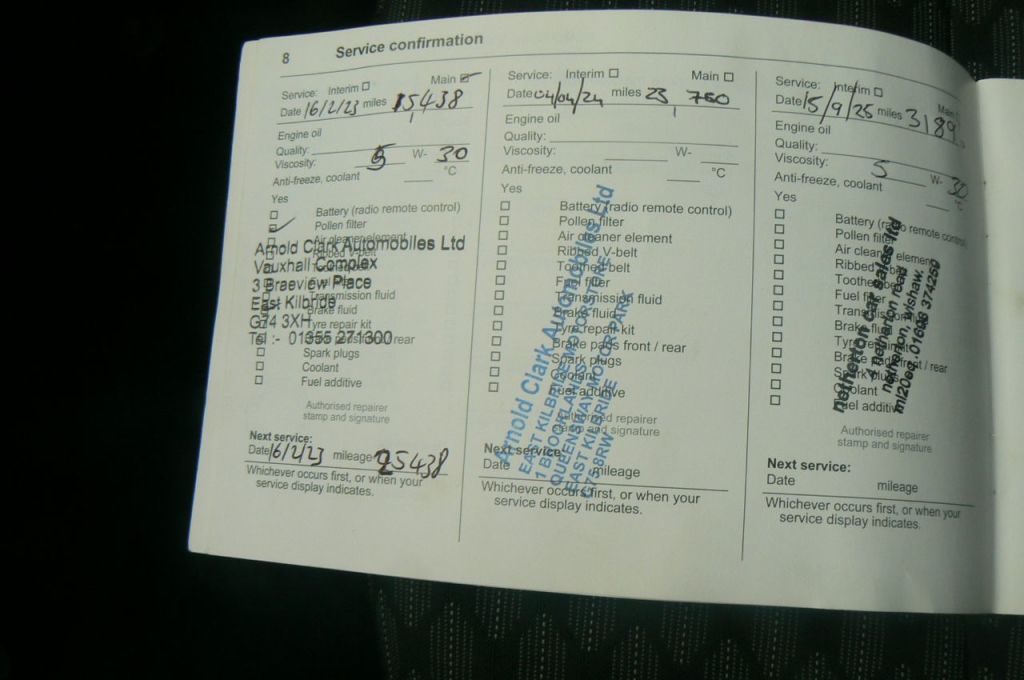 8 Service confirmation
Service: Interim Main
Date 16/2/23 miles 15438
Engine oil
Quality:
Viscosity: 5 W- 30
Anti-freeze, coolant °C
Yes
Battery (radio remote control)
Pollen filter
Air cleaner element
Ribbed V-belt
Fuel filter
Transmission fluid
Brake fluid
Tyre repair kit
Brake pads front / rear
Spark plugs
Coolant
Fuel additive
Arnold Clark Automobiles Ltd
Vauxhall Complex
3 Braeview Place
East Kilbride
G74 3XH
Tel :- 01355 271300
Authorised repairer
stamp and signature
Next service:
Date 16/2/23 mileage 25438
Whichever occurs first, or when your
service display indicates.
Service: Interim Main
Date 04/04/24 miles 23 760
Engine oil
Quality:
Viscosity: W-
Anti-freeze, coolant °C
Yes
Battery (radio remote control)
Pollen filter
Air cleaner element
Ribbed V-belt
Toothed belt
Fuel filter
Transmission fluid
Brake fluid
Tyre repair kit
Brake pads front / rear
Spark plugs
Coolant
Fuel additive
Arnold Clark Automobiles Ltd
EAST KILBRIDE MOTORSTORE
QUEENSWAY MOTOR PARK
EAST KILBRIDE
G75 8RW
Authorised repairer
stamp and signature
Next service:
Date mileage
Whichever occurs first, or when your
service display indicates.
Service: Interim Main
Date 15/9/25 miles 3189
Engine oil
Quality:
Viscosity: 5 W- 30
Anti-freeze, coolant °C
Yes
Battery (radio remote control)
Pollen filter
Air cleaner element
Ribbed V-belt
Toothed belt
Fuel filter
Transmission fluid
Brake fluid
Tyre repair kit
Brake pads front / rear
Spark plugs
Coolant
Fuel additive
netherton car sales ltd
netherton road
netherton, wishaw.
01698 374250
Authorised repairer
stamp and signature
Next service:
Date mileage
Whichever occurs first, or when your
service display indicates.